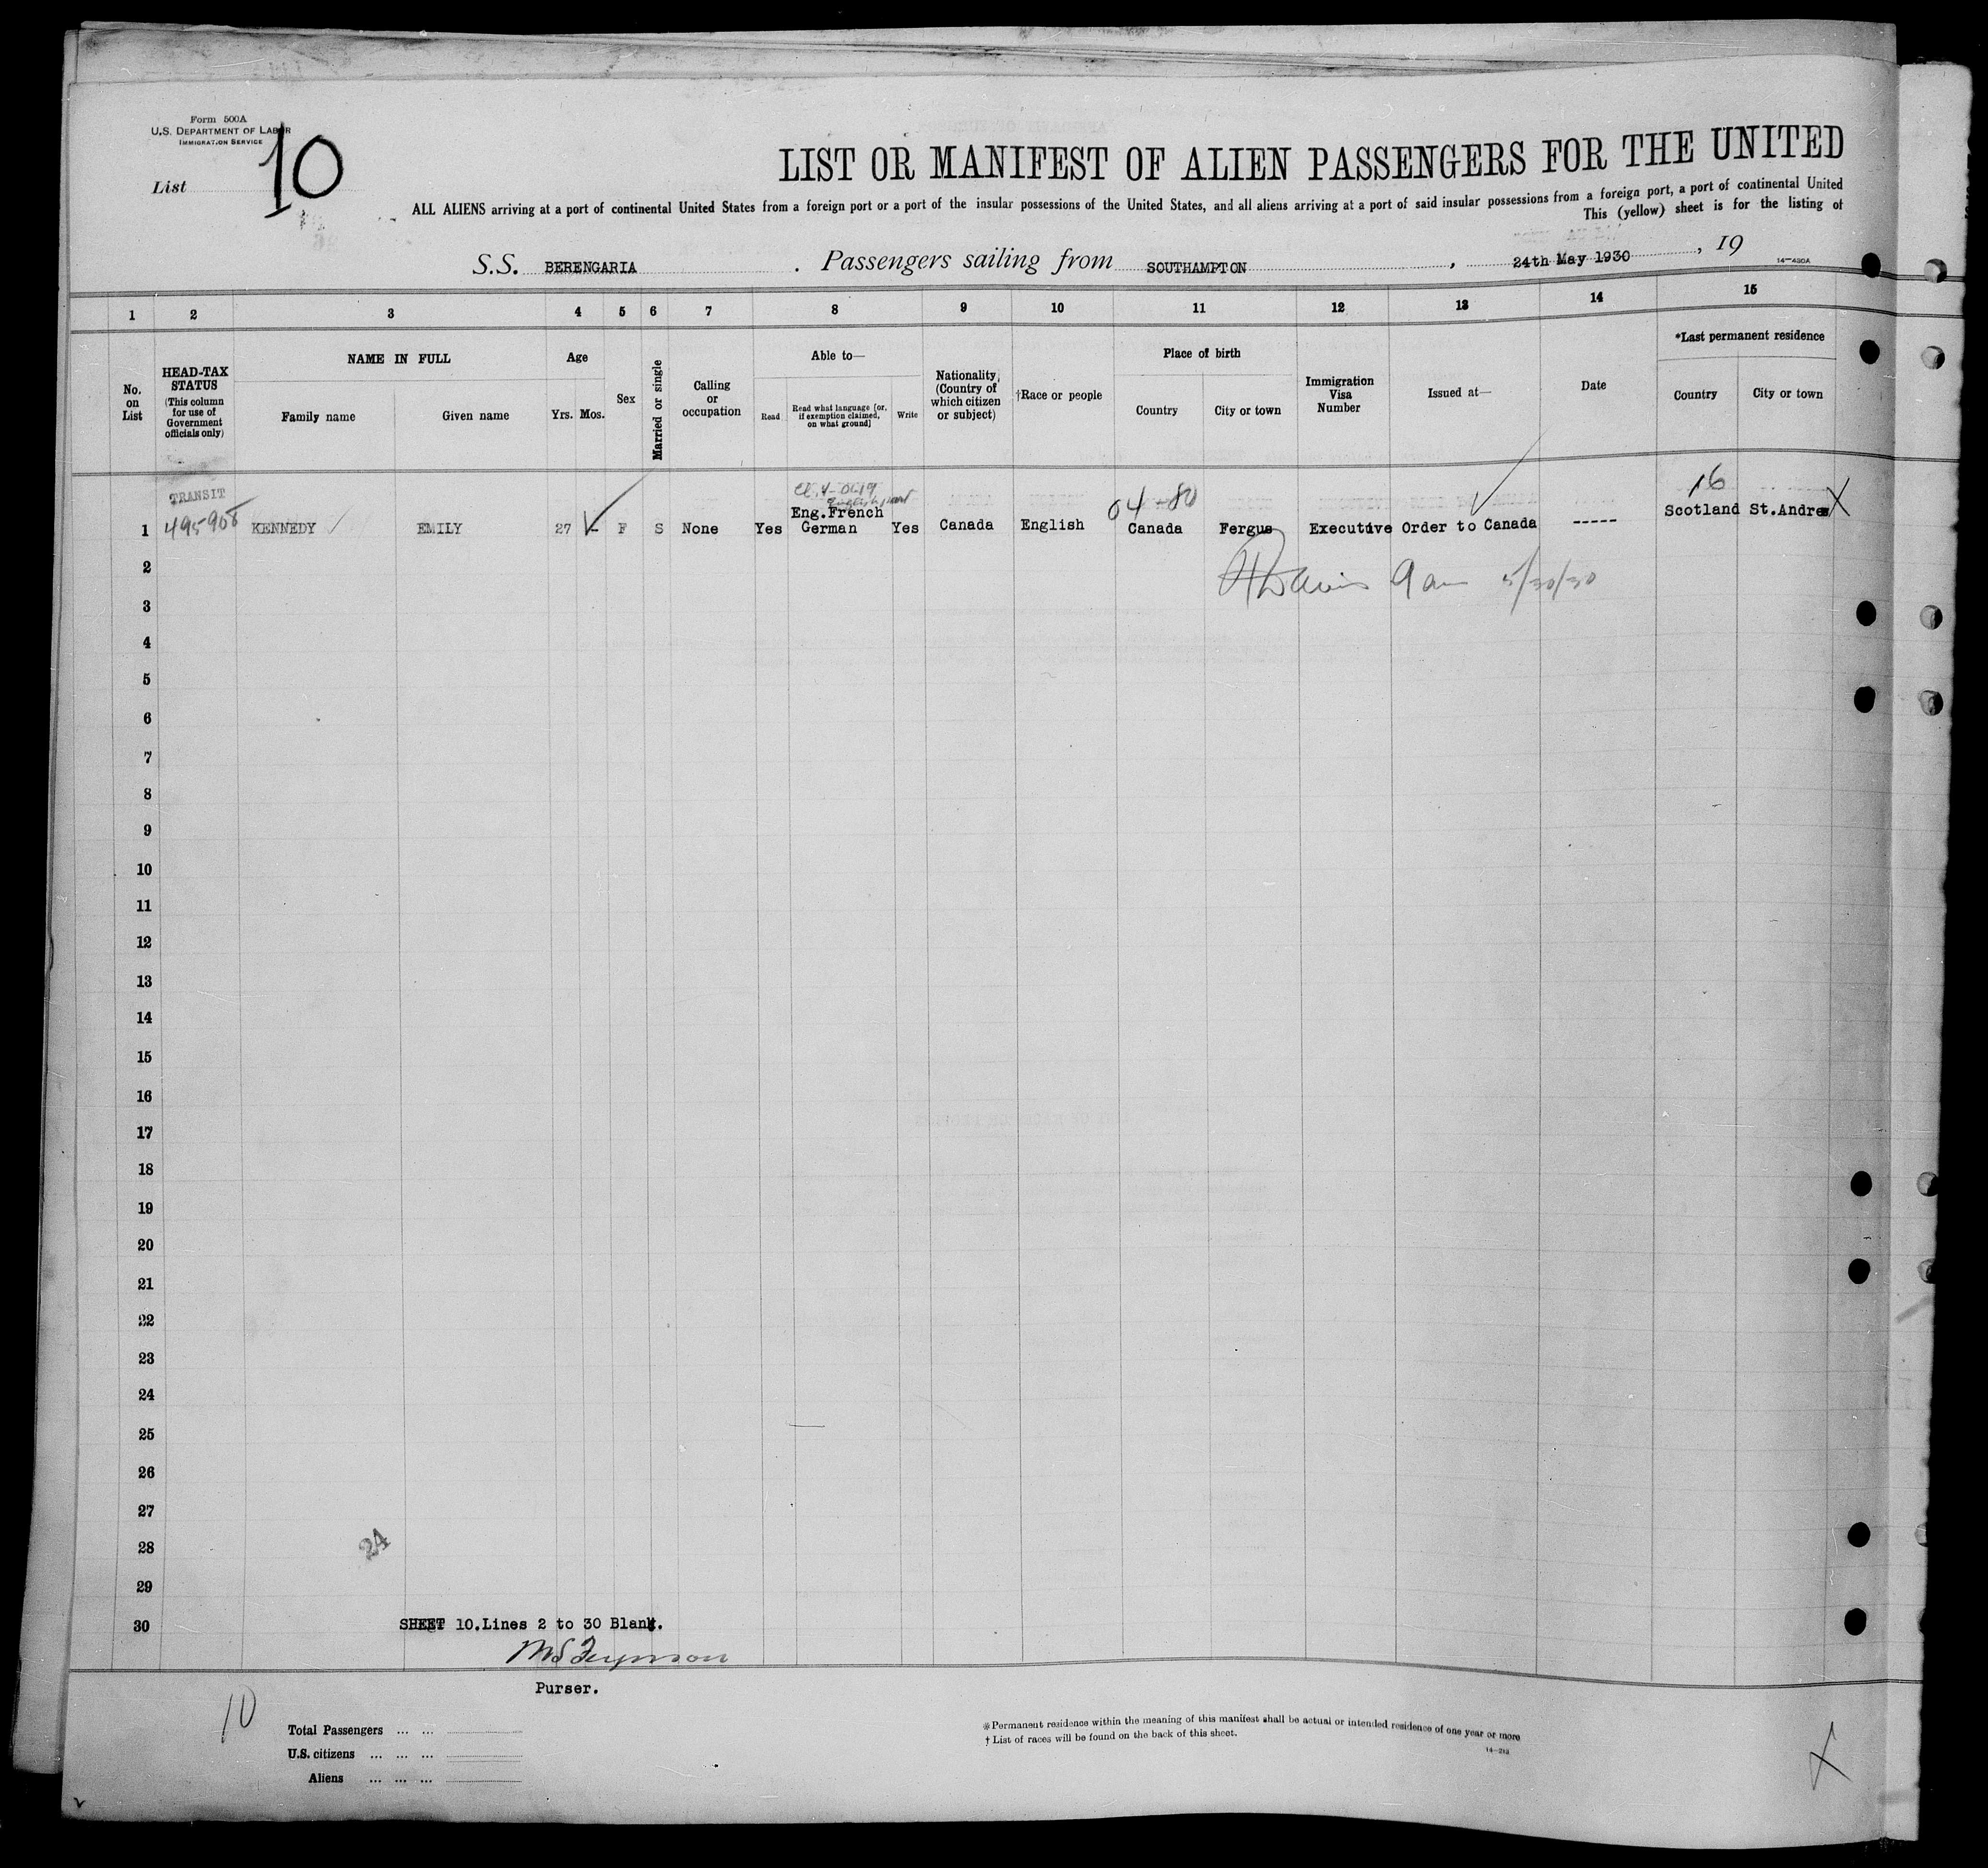 Form 500A
U.S. DEPARTMENT OF LABOR
IMMIGRATION SERVICE
List 10
LIST OR MANIFEST OF ALIEN PASSENGERS FOR THE UNITED
ALL ALIENS arriving at a port of continental United States from a foreign port or a port of the insular possessions of the United States, and all aliens arriving at a port of said insular possessions from a foreign port, a port of continental United
This (yellow) sheet is for the listing of
S.S. BERENGARIA . Passengers sailing from SOUTHAMPTON , 24th May 1930 , 19
14-430A
1 2 3 4 5 6 7 8 9 10 11 12 13 14 15
No. on List
HEAD-TAX STATUS (This column for use of Government officials only)
NAME IN FULL
Family name
Given name
Age
Yrs. Mos.
Sex
Married or single
Calling or occupation
Able to—
Read
Read what language [or, if exemption claimed, on what ground]
Write
Nationality, (Country of which citizen or subject)
†Race or people
Place of birth
Country
City or town
Immigration Visa Number
Issued at—
Date
*Last permanent residence
Country
City or town
TRANSIT
04-80
16
1 495908 KENNEDY EMILY 27 - F S None Yes Eng.French German Yes Canada English Canada Fergus Executive Order to Canada ----- Scotland St.Andrews
9 am 5/30/30
2
3
4
5
6
7
8
9
10
11
12
13
14
15
16
17
18
19
20
21
22
23
24
25
26
27
24
28
29
30 SHEET 10.Lines 2 to 30 Blank.
Purser.
10
Total Passengers ... ...
U.S. citizens ... ... ...
Aliens ... ... ...
*Permanent residence within the meaning of this manifest shall be actual or intended residence of one year or more
† List of races will be found on the back of this sheet.
X